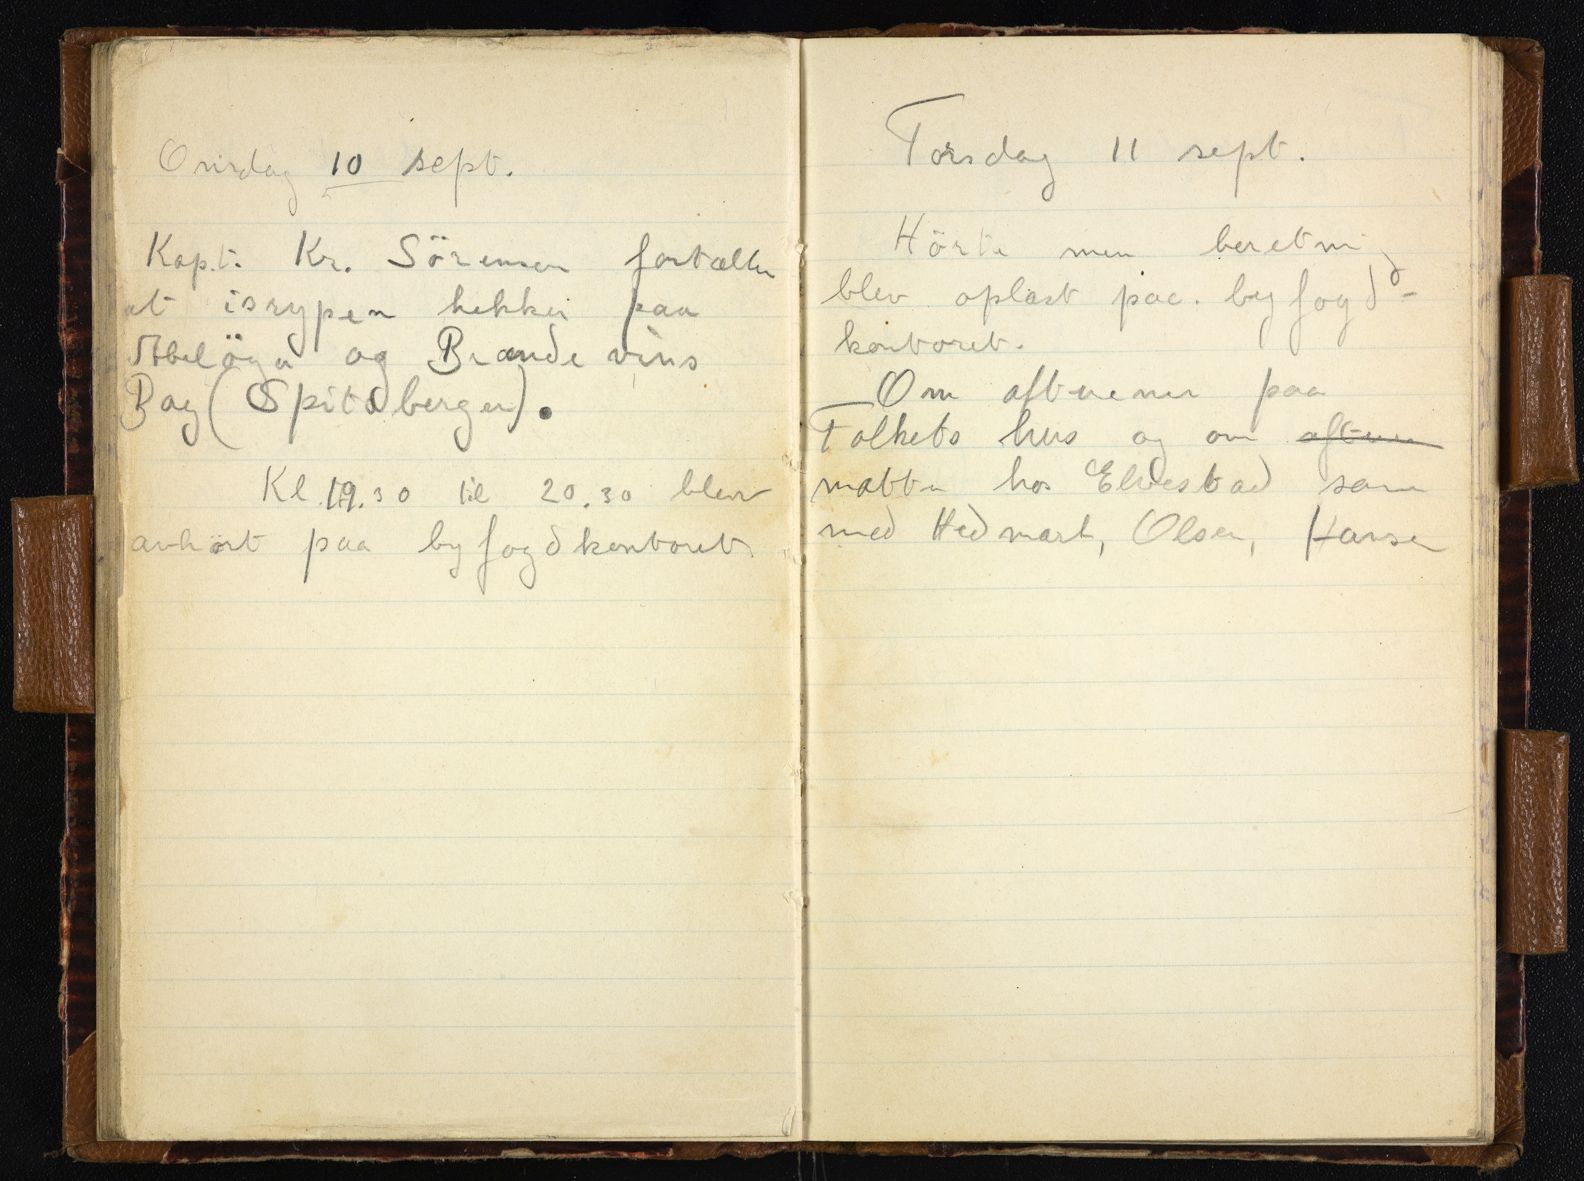 Onsdag 10 sept.
Kapt. Kr. Sörensen fortæller
at isrypen hekker paa
Abelöya og Brændevins
Bay (Spitsbergen).
Kl. 19.30 til 20.30 blev
avhört paa byfogdkontoret.
Torsdag 11 sept.
Hörte men beretning
blev oplæst paa byfogd-
kontoret.
Om aftnenen paa
Folkets hus og om aftnen
natten hos Elvestad sam
med Hedmark, Olsen, Hansen